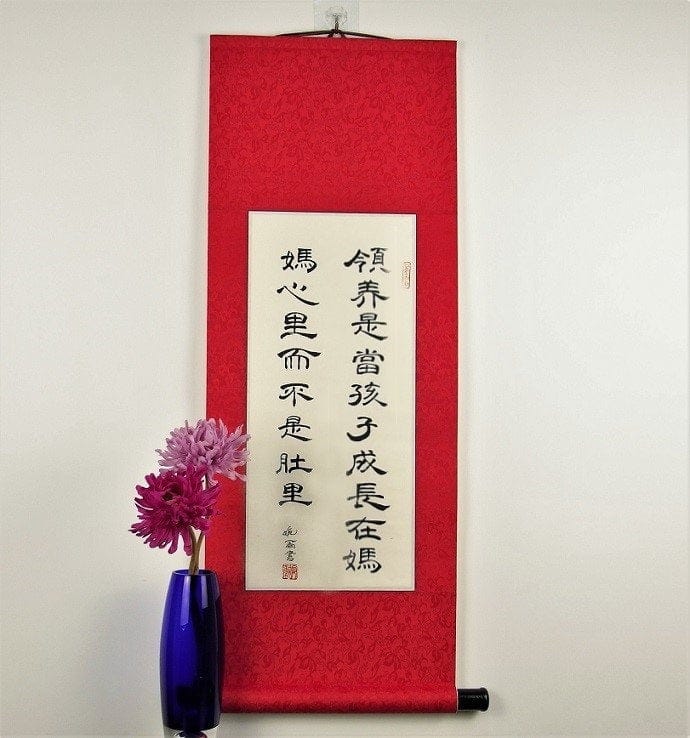 領养是當孩子成長在媽
媽心里而不是肚里